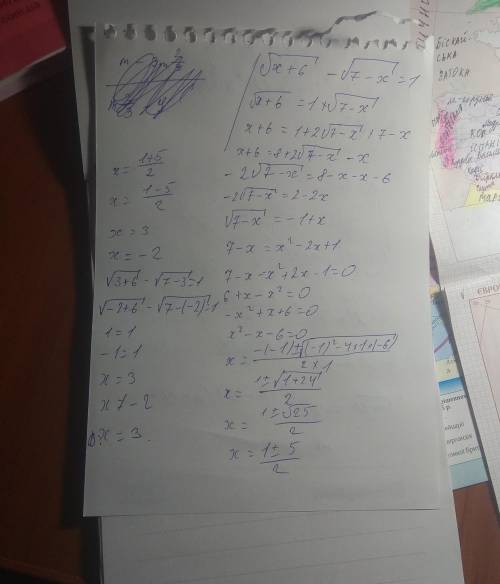 √x+6 - √7-x = 1
√x+6 = 1+√7-x
x+6 = 1+2√7-x+7-x
x+6 = 8+2√7-x - x
-2√7-x = 8-x-x-6
-2√7-x = 2-2x
√7-x = -1+x
7-x = x²-2x+1
7-x-x²+2x-1=0
6+x-x²=0
-x²+x+6=0
x²-x-6=0
x = -(-1)±√(-1)²-4×1×(-6) / 2×1
x = 1±√1+24 / 2
x = 1±√25 / 2
x = 1±5 / 2
x = 1+5 / 2
x = 1-5 / 2
x = 3
x = -2
√3+6 - √7-3 = 1
√-2+6 - √7-(-2) = 1
1=1
-1=1
x = 3
x ≠ -2
x = 3.
БІСКАЙ-
СЬКА
ЗАТОКА